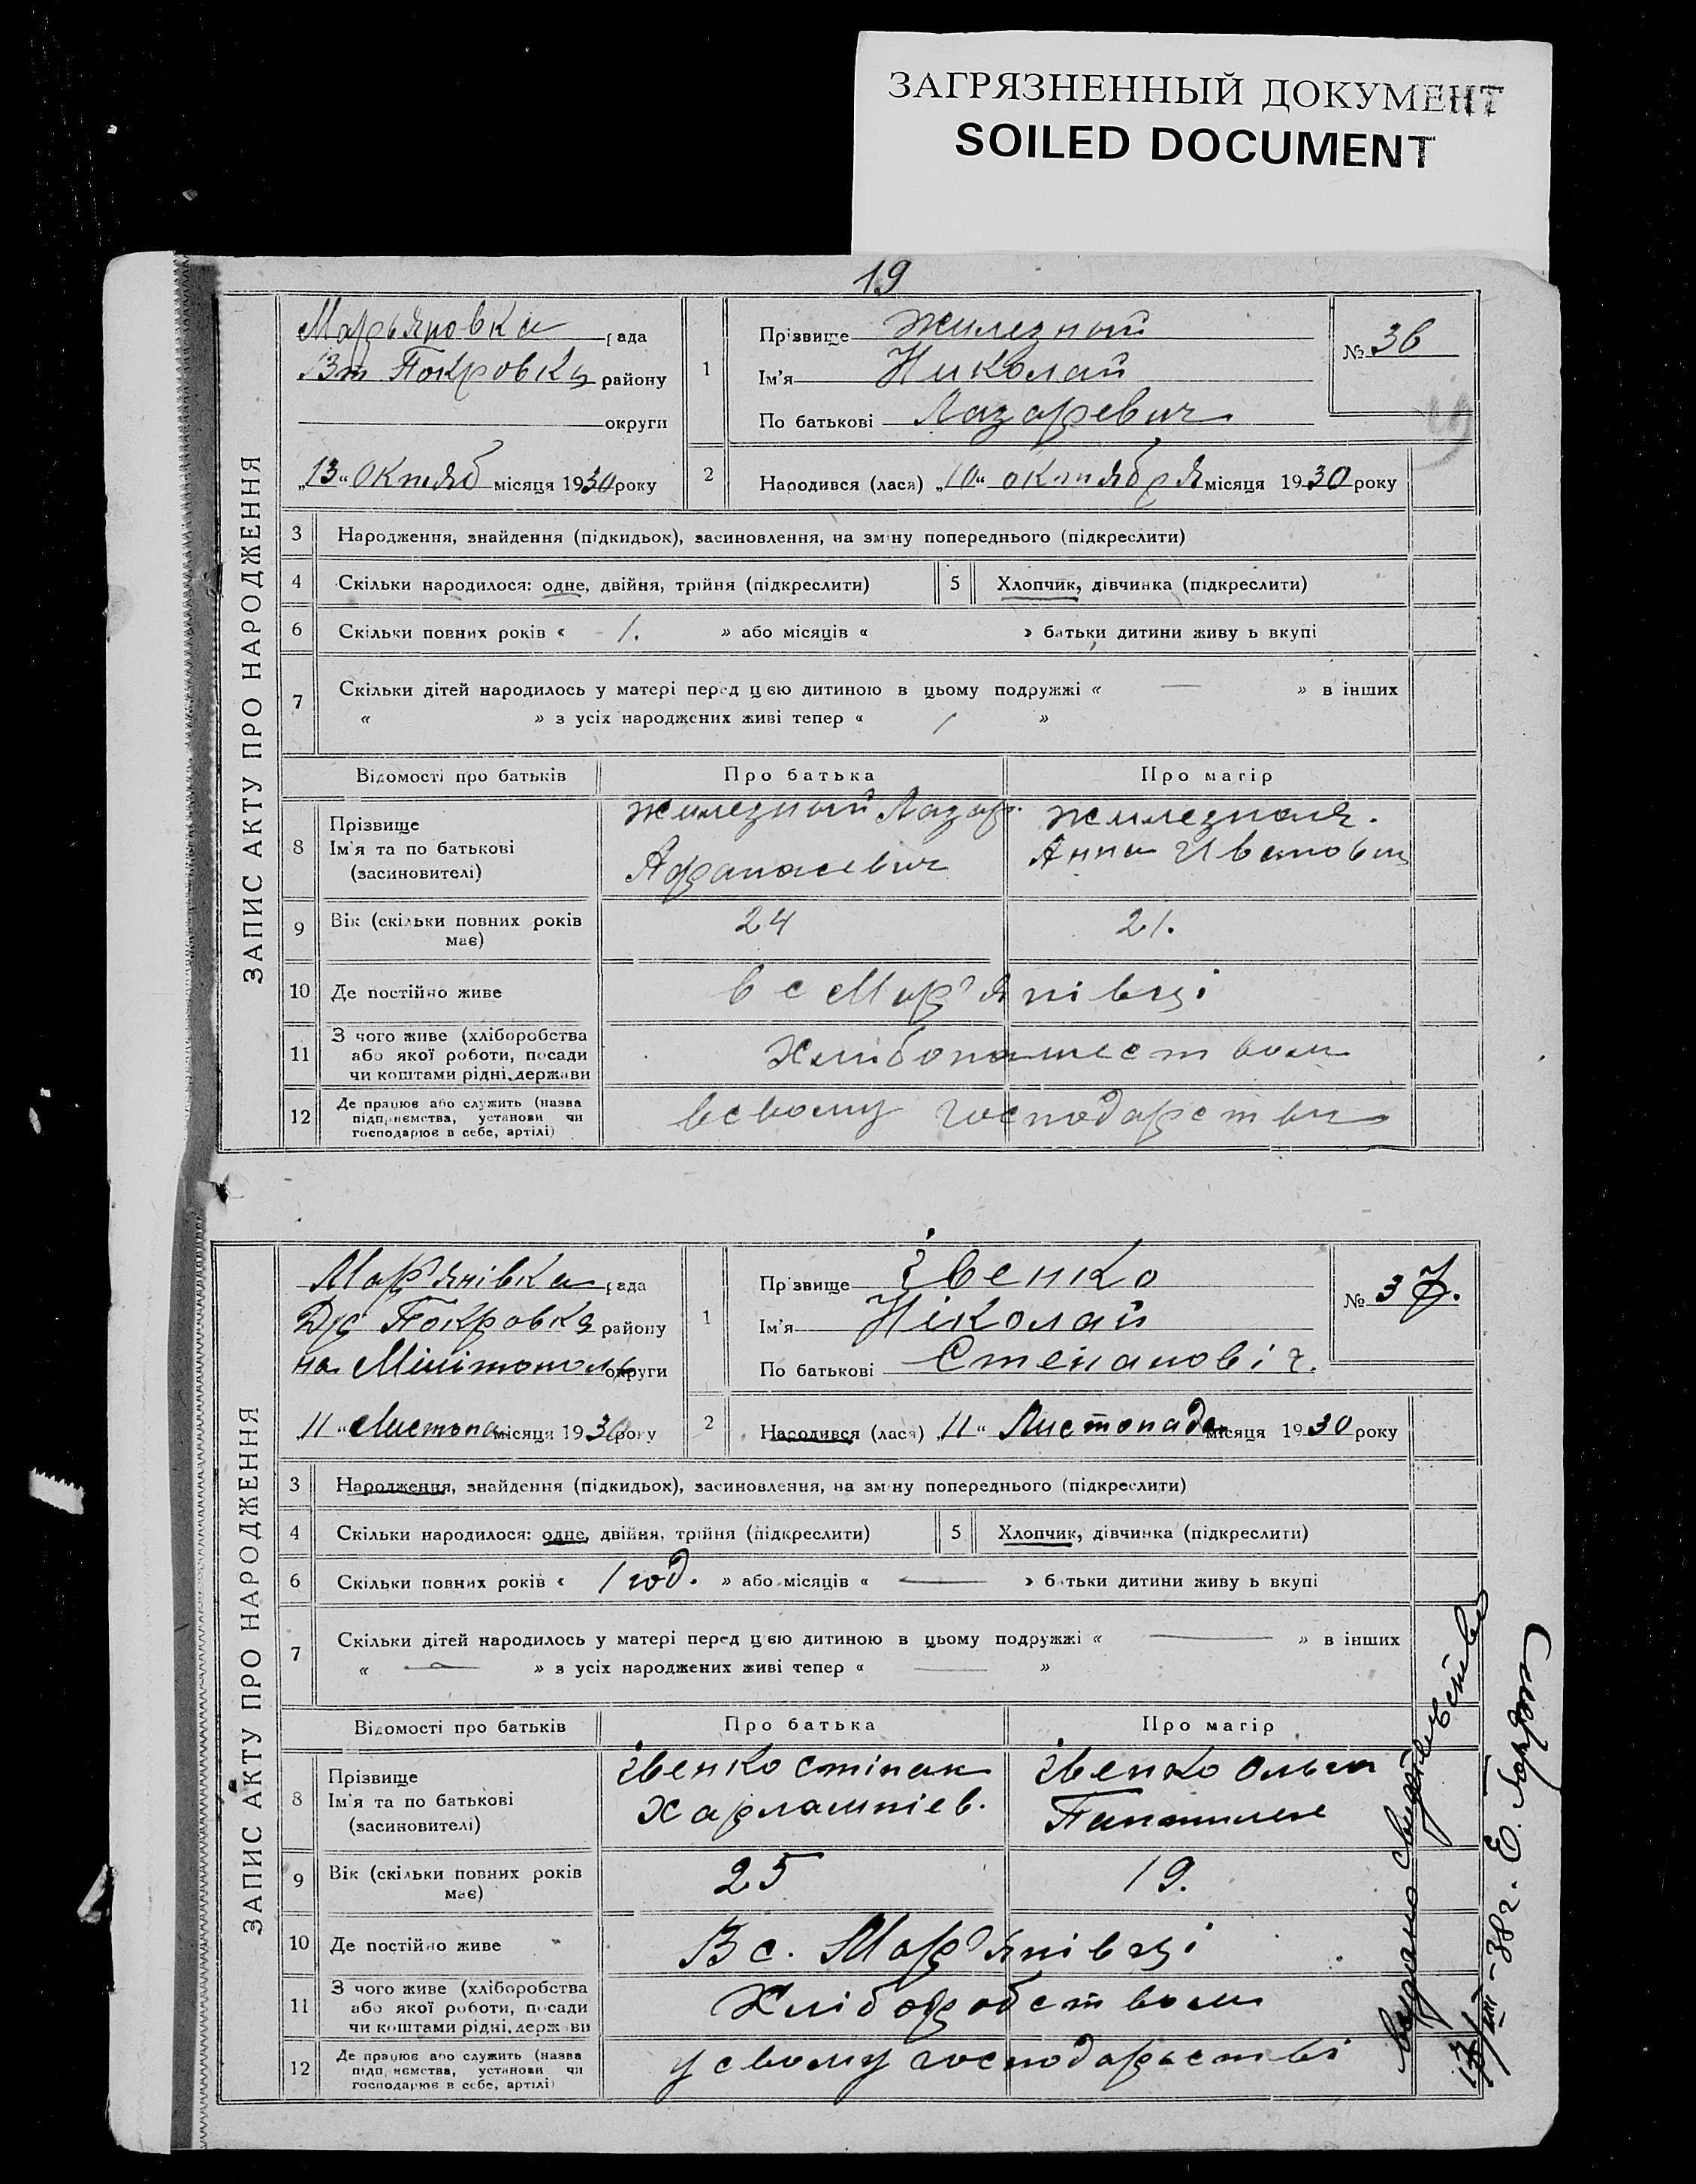 ЗАГРЯЗНЕННЫЙ ДОКУМЕНТ
SOILED DOCUMENT
19
ЗАПИС АКТУ ПРО НАРОДЖЕННЯ
Марьяновка рада
Покровка району
округи
„13“ Октяб місяця 1930 року
1
Прізвище Жилезный
Ім'я Николай
По батькові Лазаревич
№ 36
2
Народився (лася) „10“ октября місяця 1930 року
3 Народження, знайдення (підкидьок), засиновлення, на зміну попереднього (підкреслити)
4 Скільки народилося: одне, двійня, трійня (підкреслити) 5 Хлопчик, дівчинка (підкреслити)
6 Скільки повних років « 1. » або місяців « » батьки дитини живуть вкупі
7 Скільки дітей народилось у матері перед цією дитиною в цьому подружжі « — » в інших
« » з усіх народжених живі тепер « 1 »
Відомості про батьків Про батька Про матір
8 Прізвище Ім'я та по батькові (засиновителі)
Жилезный Лазар.
Афанасевич
Жилезная.
Анна Ивановн
9 Вік (скільки повних років має) 24 21.
10 Де постійно живе в с Мар'янівці
11 З чого живе (хліборобства або якої роботи, посади чи коштами рідні, держави Хлібопашеством
12 Де працює або служить (назва підприємства, установи чи господарює в себе, артілі) в свому господарстви
ЗАПИС АКТУ ПРО НАРОДЖЕННЯ
Мар'янівка рада
Покровка району
на Мілітополь округи
„11“ Листопа місяця 1930 року
1
Прізвище Івенко
Ім'я Ніколай
По батькові Степановіч.
№ 37.
2
Народився (лася) „11“ Листопада місяця 1930 року
3 Народження, знайдення (підкидьок), засиновлення, на зміну попереднього (підкреслити)
4 Скільки народилося: одне, двійня, трійня (підкреслити) 5 Хлопчик, дівчинка (підкреслити)
6 Скільки повних років « 1 год. » або місяців « — » батьки дитини живуть вкупі
7 Скільки дітей народилось у матері перед цією дитиною в цьому подружжі « — » в інших
« — » з усіх народжених живі тепер « — »
Відомості про батьків Про батька Про матір
8 Прізвище Ім'я та по батькові (засиновителі)
Івенко Стіпан
Харлампіев.
Івенко Ольга
9 Вік (скільки повних років має) 25 19.
10 Де постійно живе В с. Мар'янівці
11 З чого живе (хліборобства або якої роботи, посади чи коштами рідні, держави Хліборобством
12 Де працює або служить (назва підприємства, установи чи господарює в себе, артілі) у свому господарьстві
выдано свидетельство
17/III-38г.